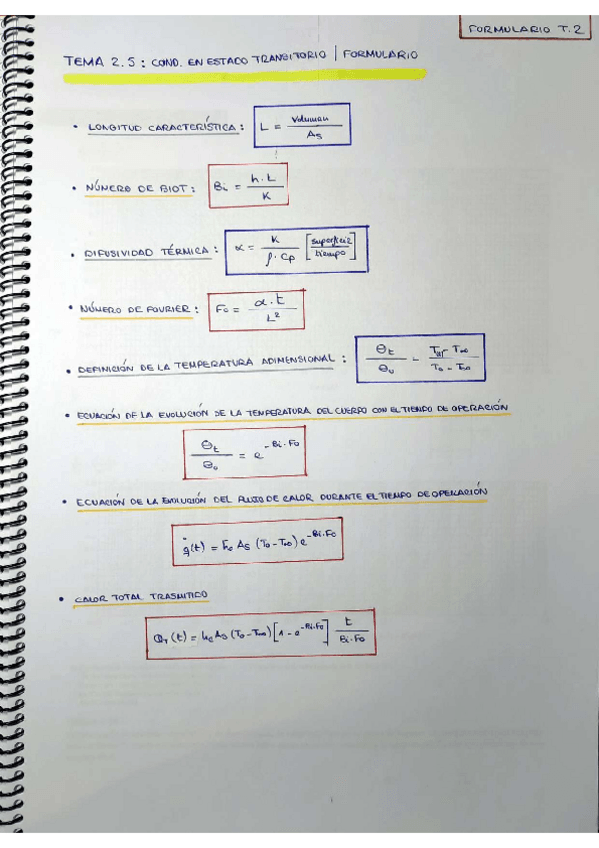 FORMULARIO T.2
TEMA 2.5: COND. EN ESTADO TRANSITORIO | FORMULARIO
• LONGITUD CARACTERÍSTICA: L = Volumen / As
• NÚMERO DE BIOT: Bi = h·L / K
• DIFUSIVIDAD TÉRMICA: α = K / ρ·Cp [superficie / tiempo]
• NÚMERO DE FOURIER: Fo = α·t / L²
• DEFINICIÓN DE LA TEMPERATURA ADIMENSIONAL: θt / θ0 = T(t) - T∞ / T0 - T∞
• ECUACIÓN DE LA EVOLUCIÓN DE LA TEMPERATURA DEL CUERPO CON EL TIEMPO DE OPERACIÓN
θt / θ0 = e^-Bi·Fo
• ECUACIÓN DE LA EVOLUCIÓN DEL FLUJO DE CALOR DURANTE EL TIEMPO DE OPERACIÓN
q̇(t) = h̄c As (T0 - T∞) e^-Bi·Fo
• CALOR TOTAL TRASMITIDO
QT(t) = hc As (T0 - T∞) [1 - e^-Bi·Fo] t / Bi·Fo